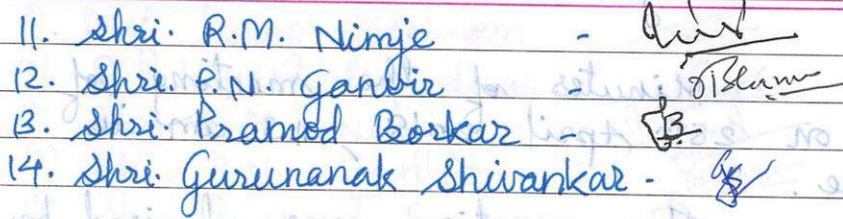 11. Shri. R.M. Nimje -
12. Shri. P.N. Ganvir -
13. Shri. Pramod Borkar -
14. Shri. Gurunanak Shivankar -